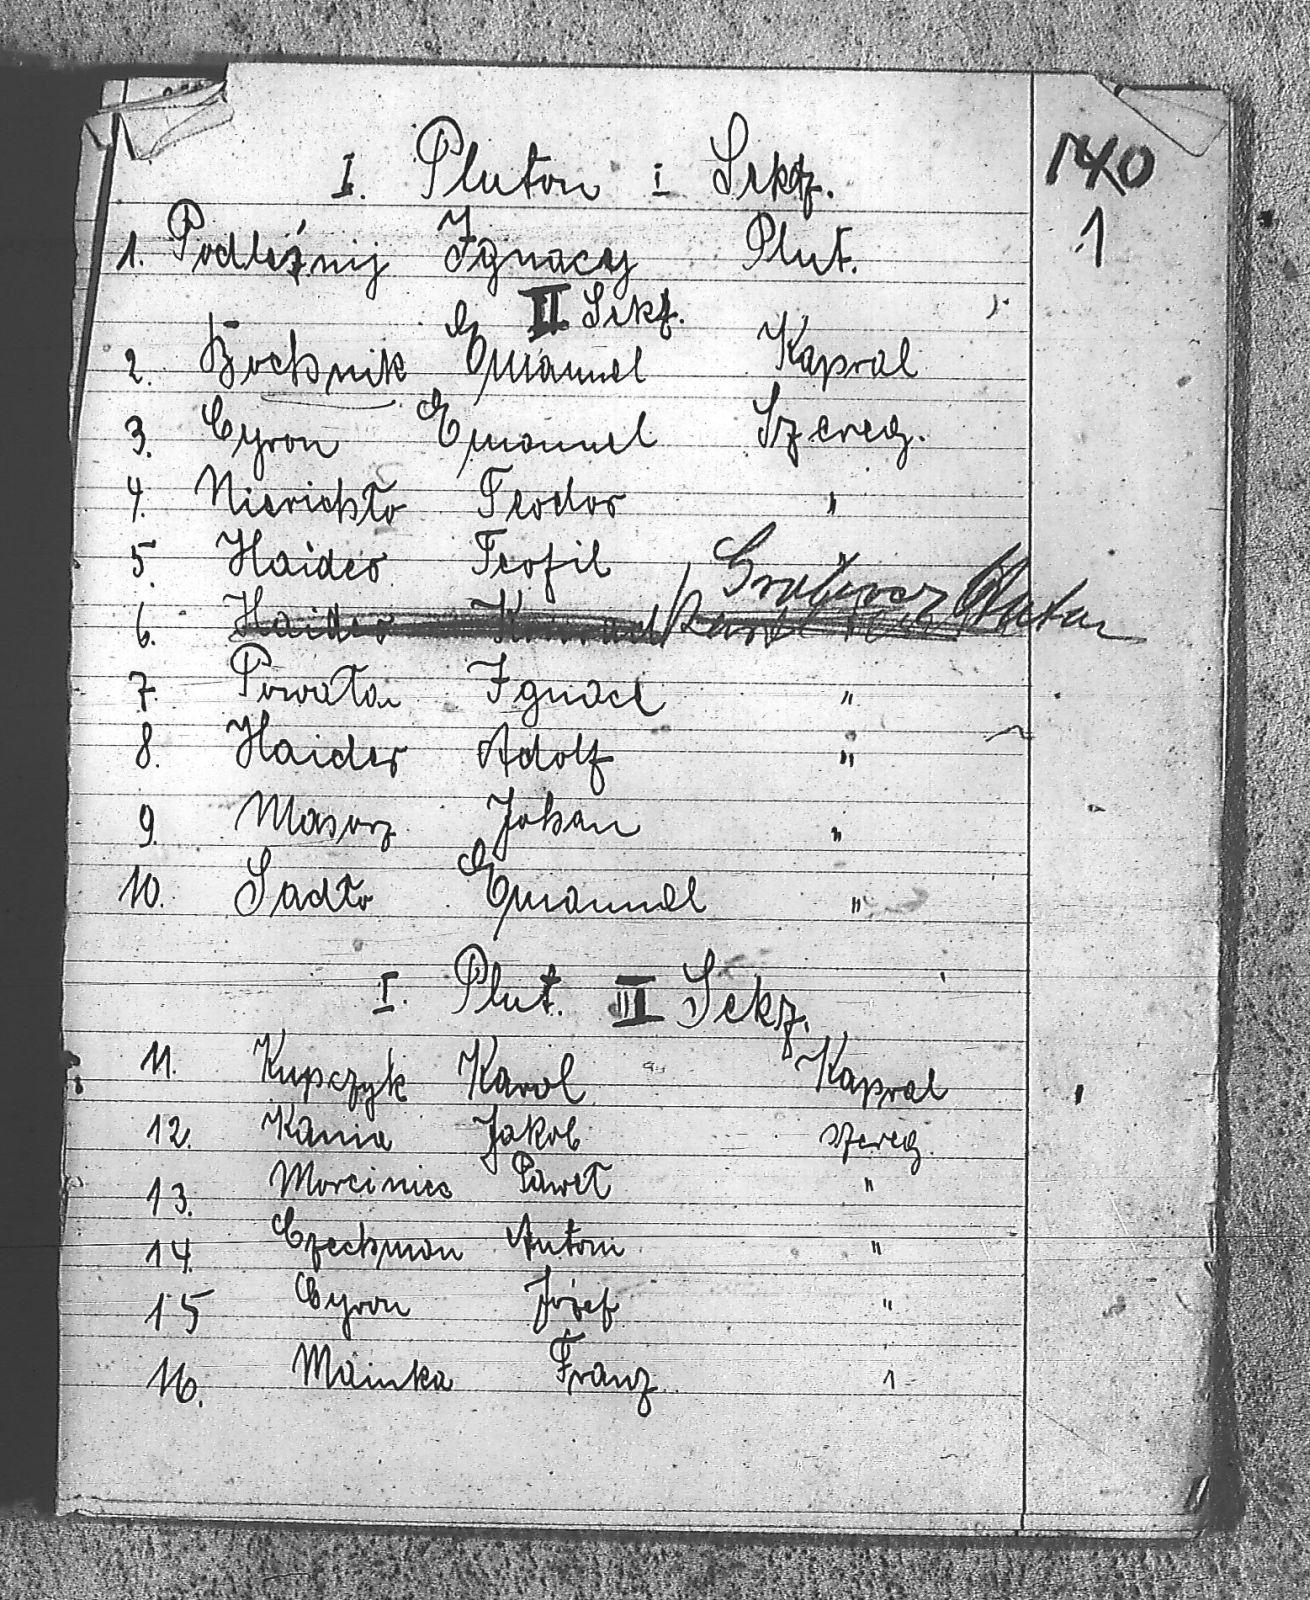 I. Pluton i Sekz.
140
1. Podleźnij Ignacy Plut.
1
II Sekz.
2. Bochynik Emanuel Kapral
3. Cyron Emanuel Szereg.
4. Nierichło Teodor "
5. Haider Teofil
6. Haider Konrad
7. Powała Ignacl "
8. Haider Adolf "
9. Masorz Johan "
10. Sadło Emanuel "
I. Plut. III Sekz.
11. Kupczyk Karol Kapral
12. Kania Jakob szereg.
13. Morciniec Paweł "
14. Czechman Antoni "
15 Cyron Józef "
16. Mainka Franz "